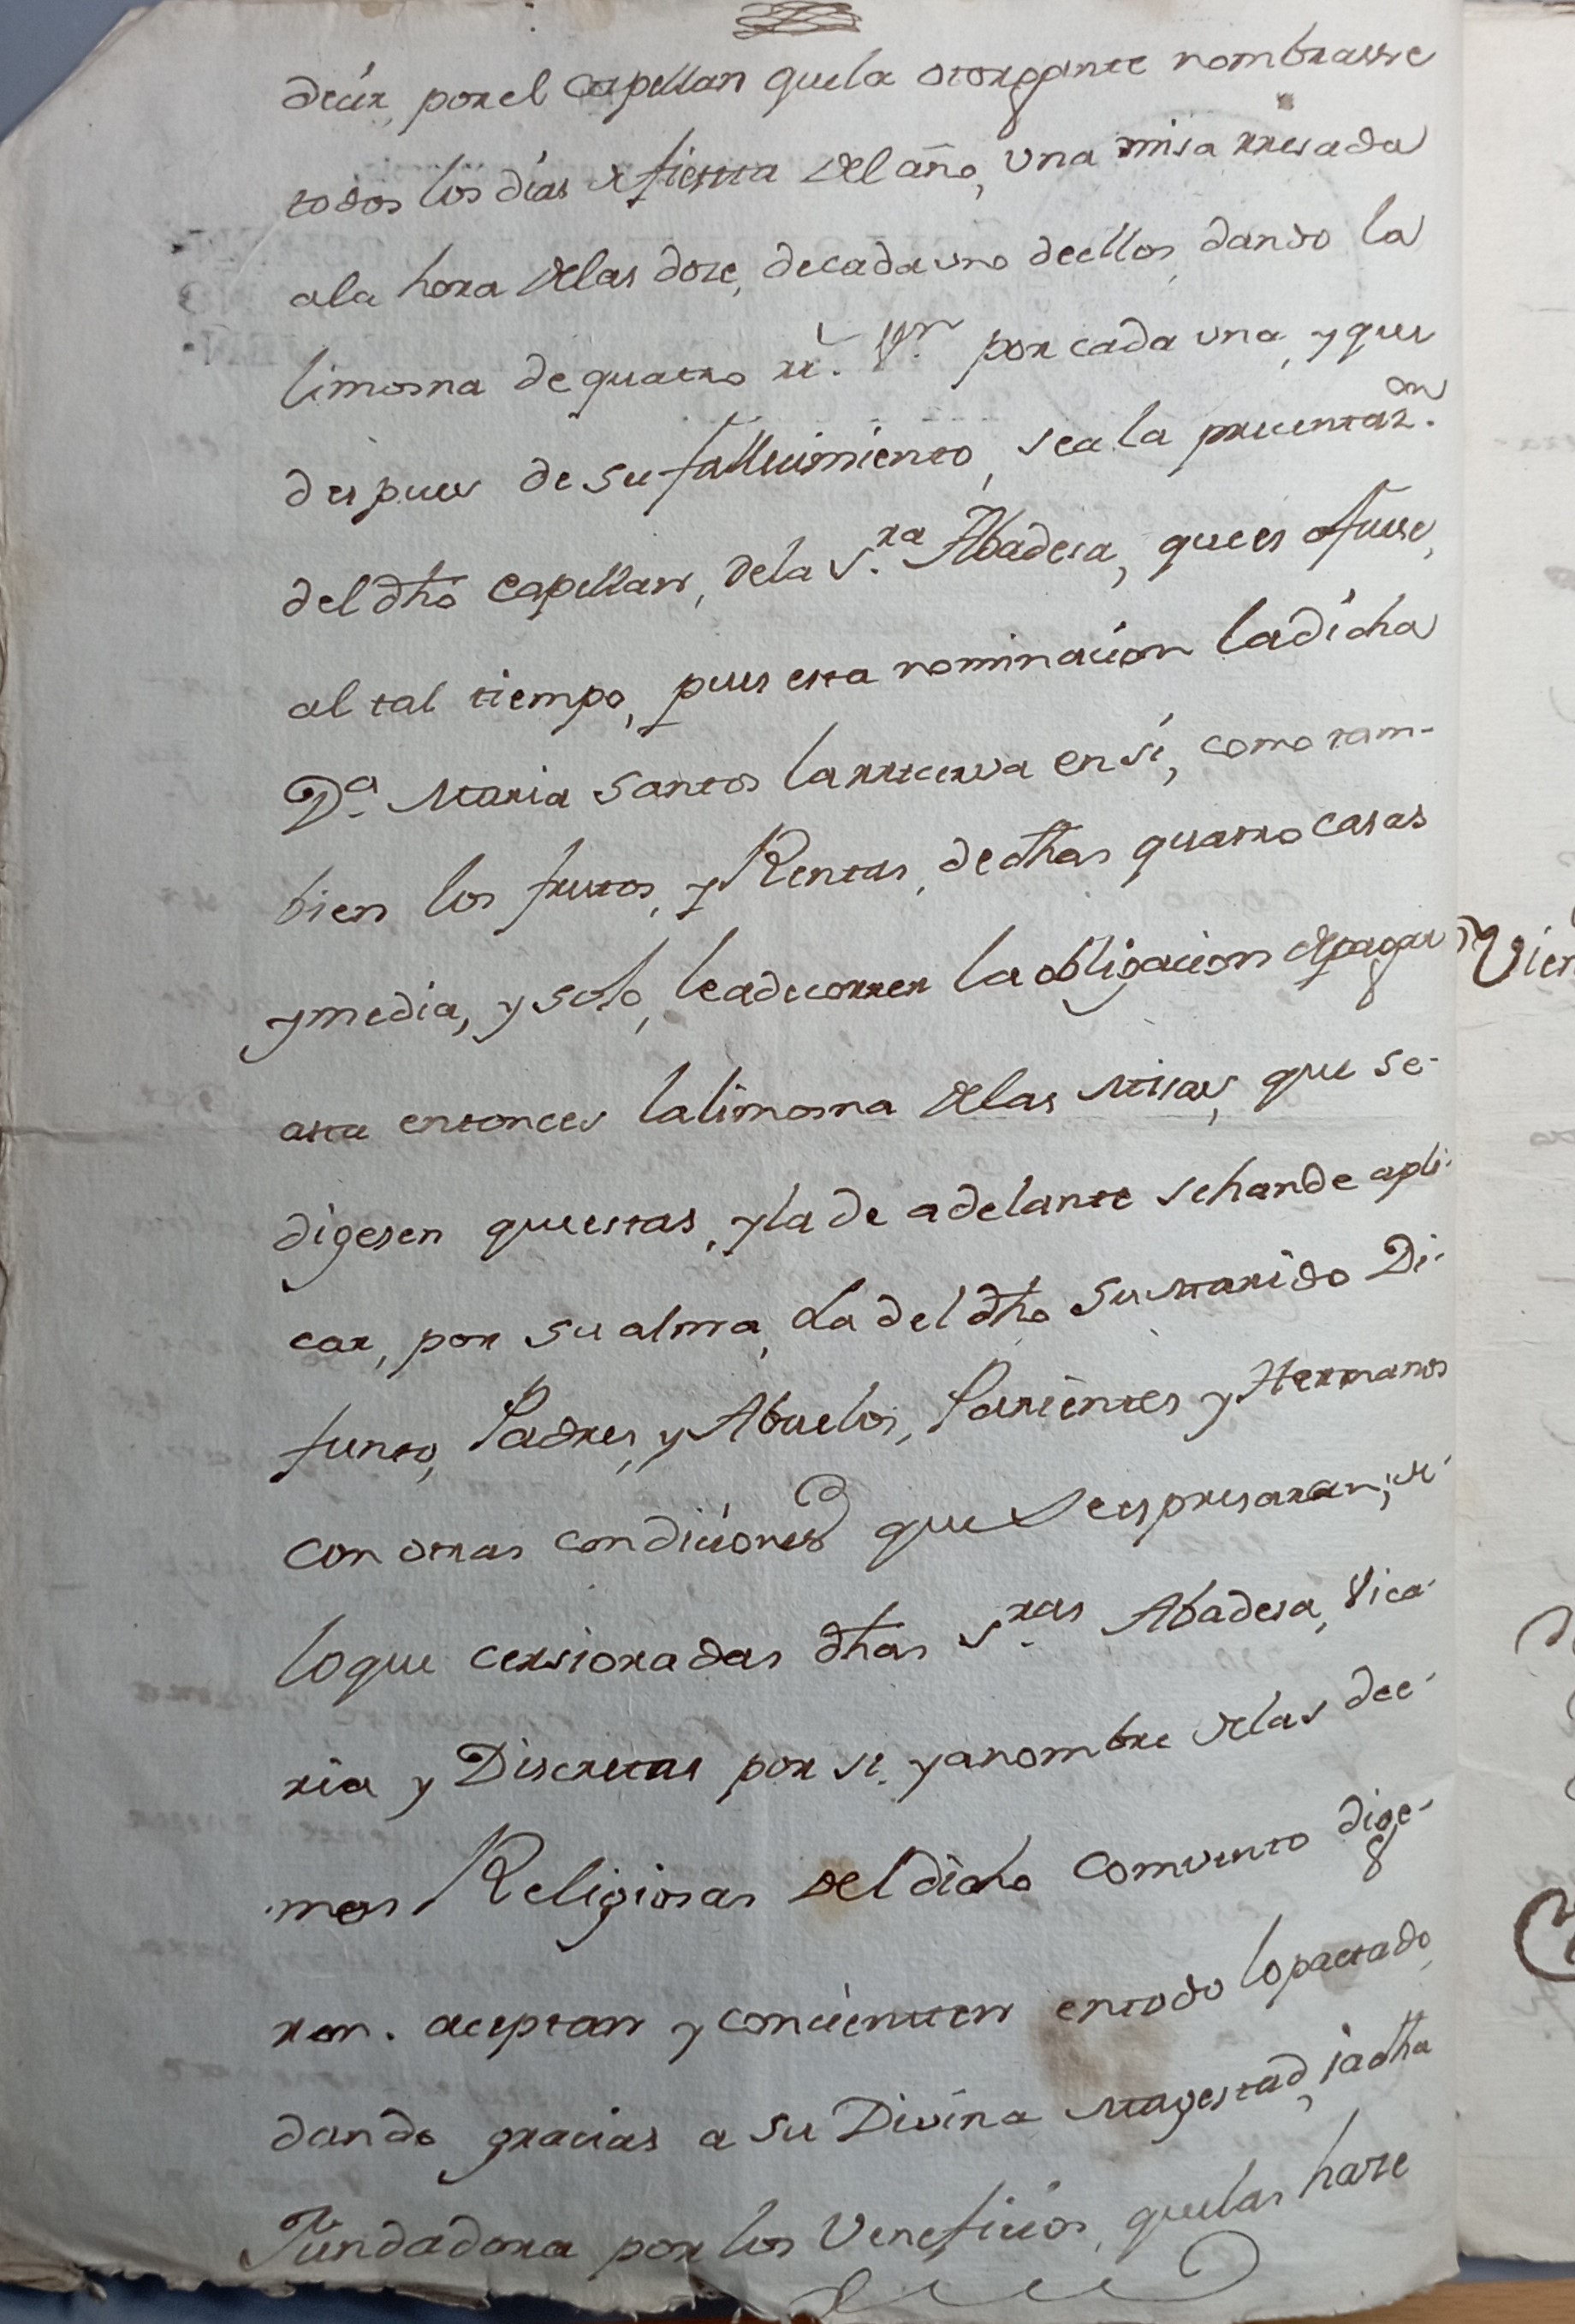 decir, por el capellan que la otorgante nombrasse
todos los dias de fiesta del año, una misa rresada
a la hora de las doze, de cada uno de ellos, dando la
limosna de quatro rr.ˢ vⁿ por cada una, y que
despues de su fallecimiento, sea la precentaz.on
del dho capellan, de la S.ra Abadesa, que es o fuese,
al tal tiempo, pues esta nominacion la dicha
D.a Maria Santos la rrecerva en si, como tam-
bien los frutos, y Rentas, de dhas quatro casas
y media, y solo, le a de correr la obligacion de pagar
asta entonces la limosna de las Misas, que se-
digesen que estas, y la de adelante se han de apli-
car, por su alma, La del dho su Marido Di-
funto, Padres, y Abuelos, Parientes y Hermanos
con otras condiciones que se espresaran; de
lo que cersioradas dhas S.ras Abadesa, Vica-
ria y Discretas por si y a nombre de las dee-
mas Religiosas del dicho combento dige-
ron. aceptan y concienten en todo lo pactado,
dando gracias a su Divina Magestad, i a dha
Fundadora por los Veneficios, que las haze